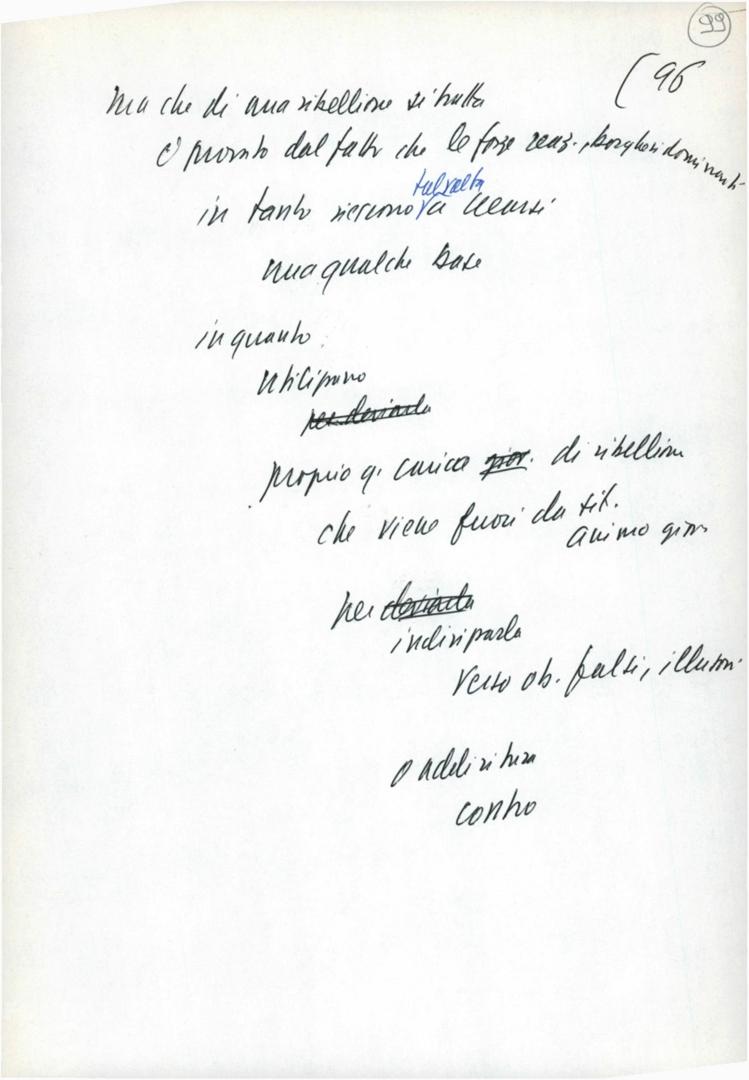 99
(96
Ma che di una ribellione si tratta
è provato dal fatto che le forze reaz., borghesi dominanti
talvolta
in tanto riescono a crearsi
una qualche base
in quanto
utilizzano
per deviarla
proprio q. carica giov. di ribellione
che viene fuori da sit.
animo giov.
per deviarla
indirizzarla
verso ob. falsi, illusori
o addirittura
contro